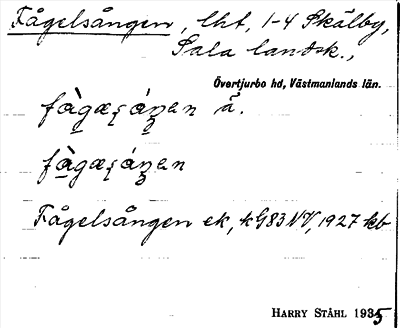 Fågelsången, lht, 1-4 Skälby,
Sala landsk.,
Övertjurbo hd, Västmanlands län.
fàgæʂáŋen ä.
fàgæʂáŋen
Fågelsången ek, kG83NV, 1927 kb
HARRY STÅHL 1935